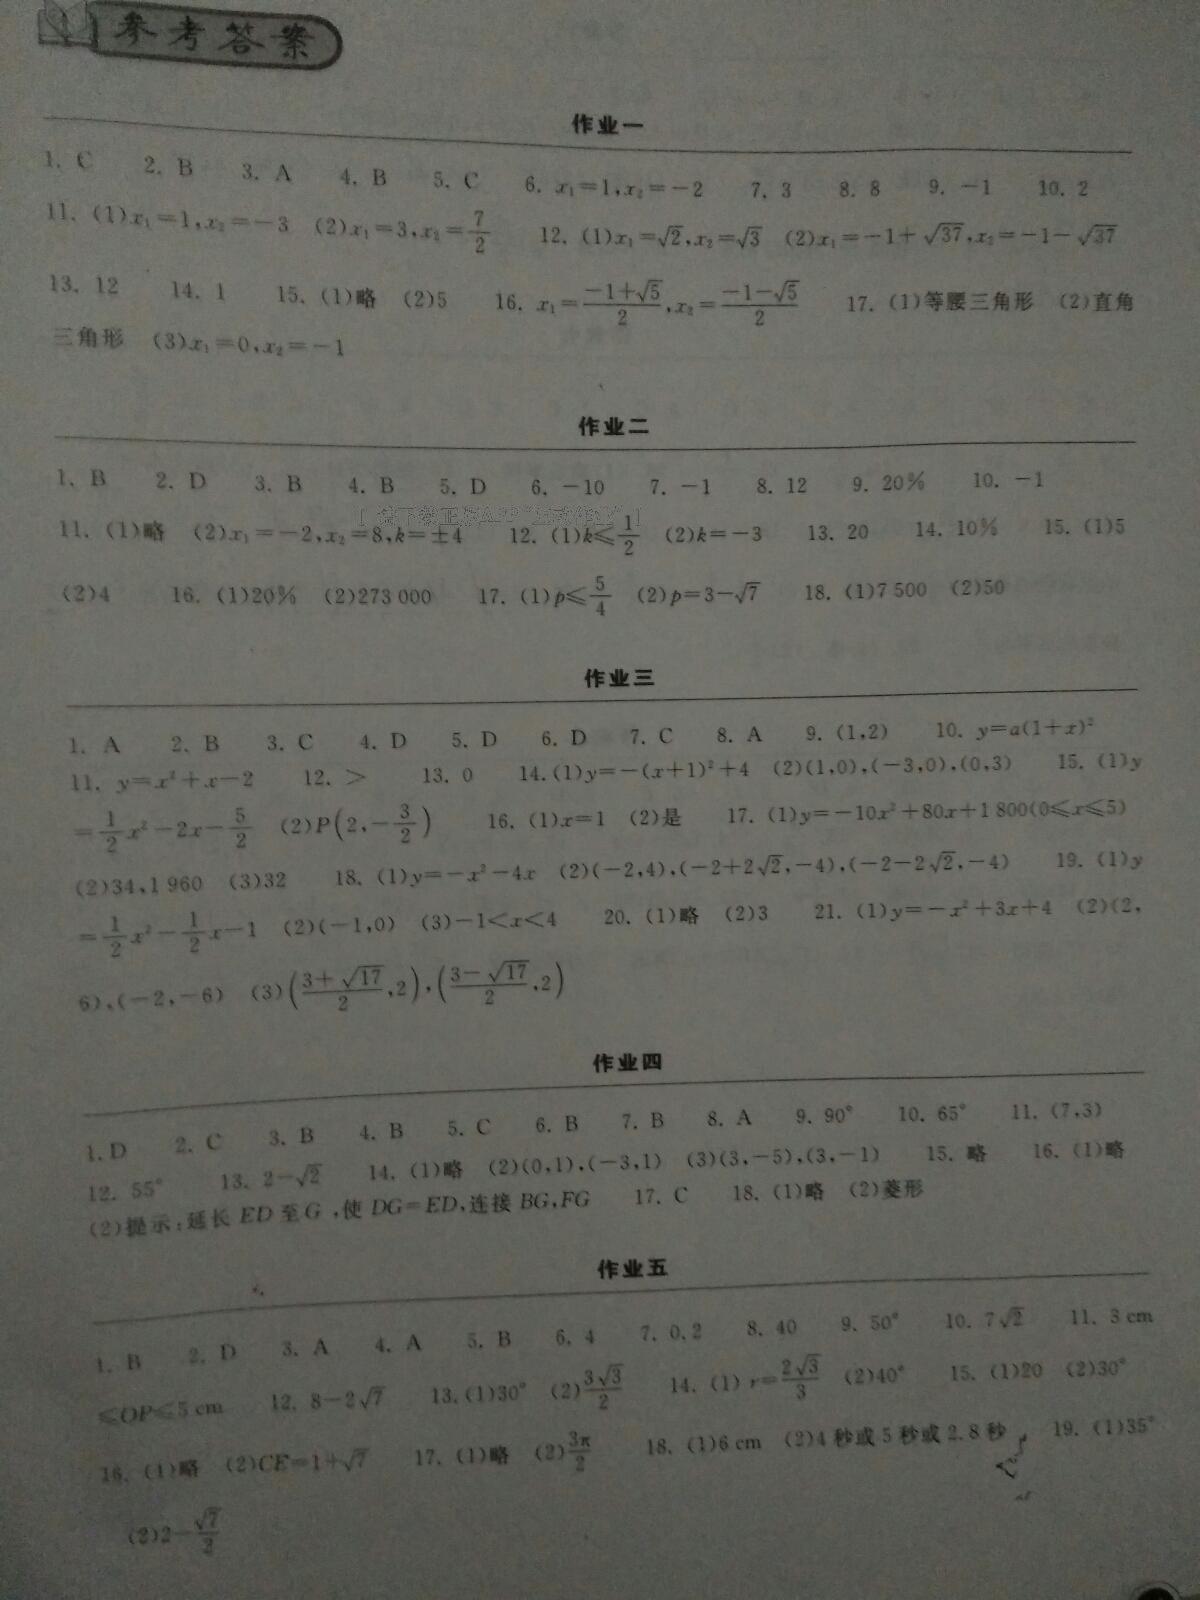 参考答案
作业一
1. C 2. B 3. A 4. B 5. C 6. x₁=1,x₂=-2 7. 3 8. 8 9. -1 10. 2
11. (1)x₁=1,x₂=-3 (2)x₁=3,x₂=7/2 12. (1)x₁=√2,x₂=√3 (2)x₁=-1+√37,x₂=-1-√37
13. 12 14. 1 15. (1)略 (2)5 16. x₁=(-1+√5)/2,x₂=(-1-√5)/2 17. (1)等腰三角形 (2)直角
三角形 (3)x₁=0,x₂=-1
作业二
1. B 2. D 3. B 4. B 5. D 6. -10 7. -1 8. 12 9. 20% 10. -1
11. (1)略 (2)x₁=-2,x₂=8,k=±4 12. (1)k≤1/2 (2)k=-3 13. 20 14. 10% 15. (1)5
(2)4 16. (1)20% (2)273 000 17. (1)p≤5/4 (2)p=3-√7 18. (1)7 500 (2)50
作业三
1. A 2. B 3. C 4. D 5. D 6. D 7. C 8. A 9. (1,2) 10. y=a(1+x)²
11. y=x²+x-2 12. > 13. 0 14. (1)y=-(x+1)²+4 (2)(1,0),(-3,0),(0,3) 15. (1)y
=1/2x²-2x-5/2 (2)P(2,-3/2) 16. (1)x=1 (2)是 17. (1)y=-10x²+80x+1 800(0≤x≤5)
(2)34,1 960 (3)32 18. (1)y=-x²-4x (2)(-2,4),(-2+2√2,-4),(-2-2√2,-4) 19. (1)y
=1/2x²-1/2x-1 (2)(-1,0) (3)-1<x<4 20. (1)略 (2)3 21. (1)y=-x²+3x+4 (2)(2,
6),(-2,-6) (3)((3+√17)/2,2),((3-√17)/2,2)
作业四
1. D 2. C 3. B 4. B 5. C 6. B 7. B 8. A 9. 90° 10. 65° 11. (7,3)
12. 55° 13. 2-√2 14. (1)略 (2)(0,1),(-3,1) (3)(3,-5),(3,-1) 15. 略 16. (1)略
(2)提示:延长ED至G,使DG=ED,连接BG,FG 17. C 18. (1)略 (2)菱形
作业五
1. B 2. D 3. A 4. A 5. B 6. 4 7. 0.2 8. 40 9. 50° 10. 7√2 11. 3 cm
≤OP≤5 cm 12. 8-2√7 13. (1)30° (2)3√3/2 14. (1) r=2√3/3 (2)40° 15. (1)20 (2)30°
16. (1)略 (2)CE=1+√7 17. (1)略 (2)3π/2 18. (1)6 cm (2)4秒或5秒或2.8秒 19. (1)35°
(2)2-√7/2